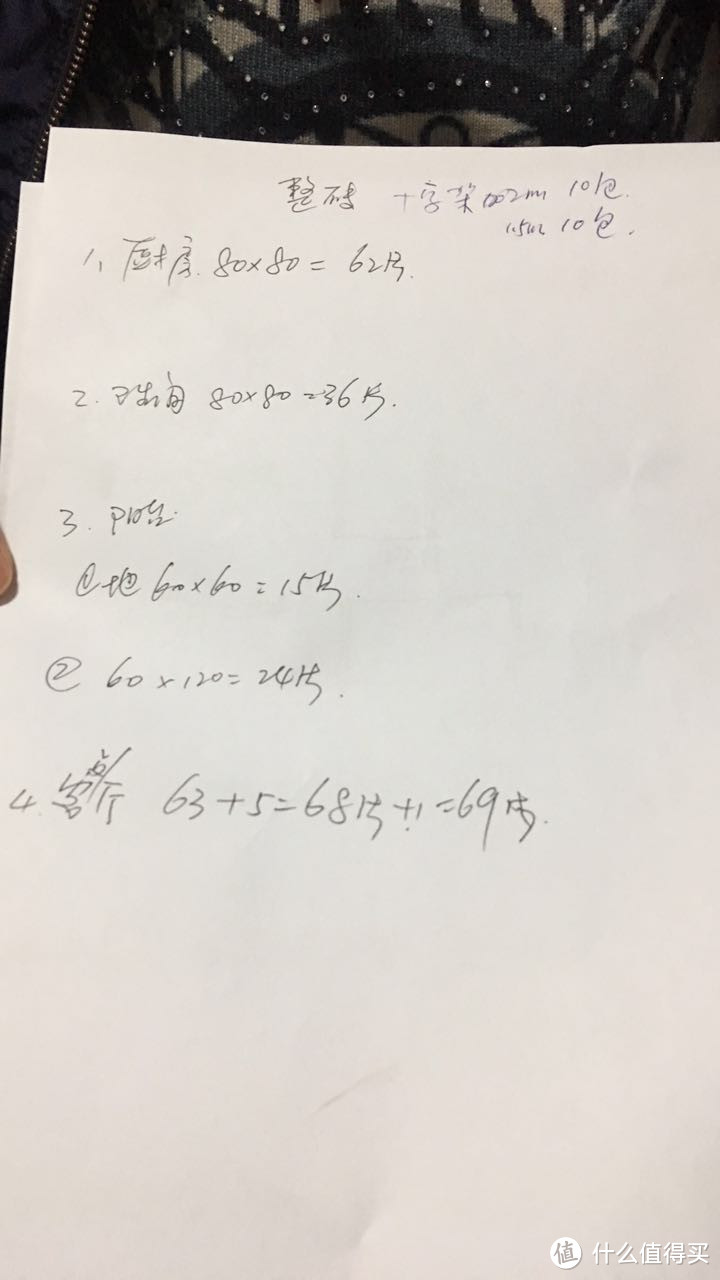 整砖 十字架 2m 10包.
1.5m 10包.
1、厨房. 80×80 = 62片.
2. 卫生间 80×80 = 36片.
3. 阳台.
①地 60×60 = 15片.
② 60×120 = 24片.
4. 客厅 63+5=68片+1=69片.
值 什么值得买